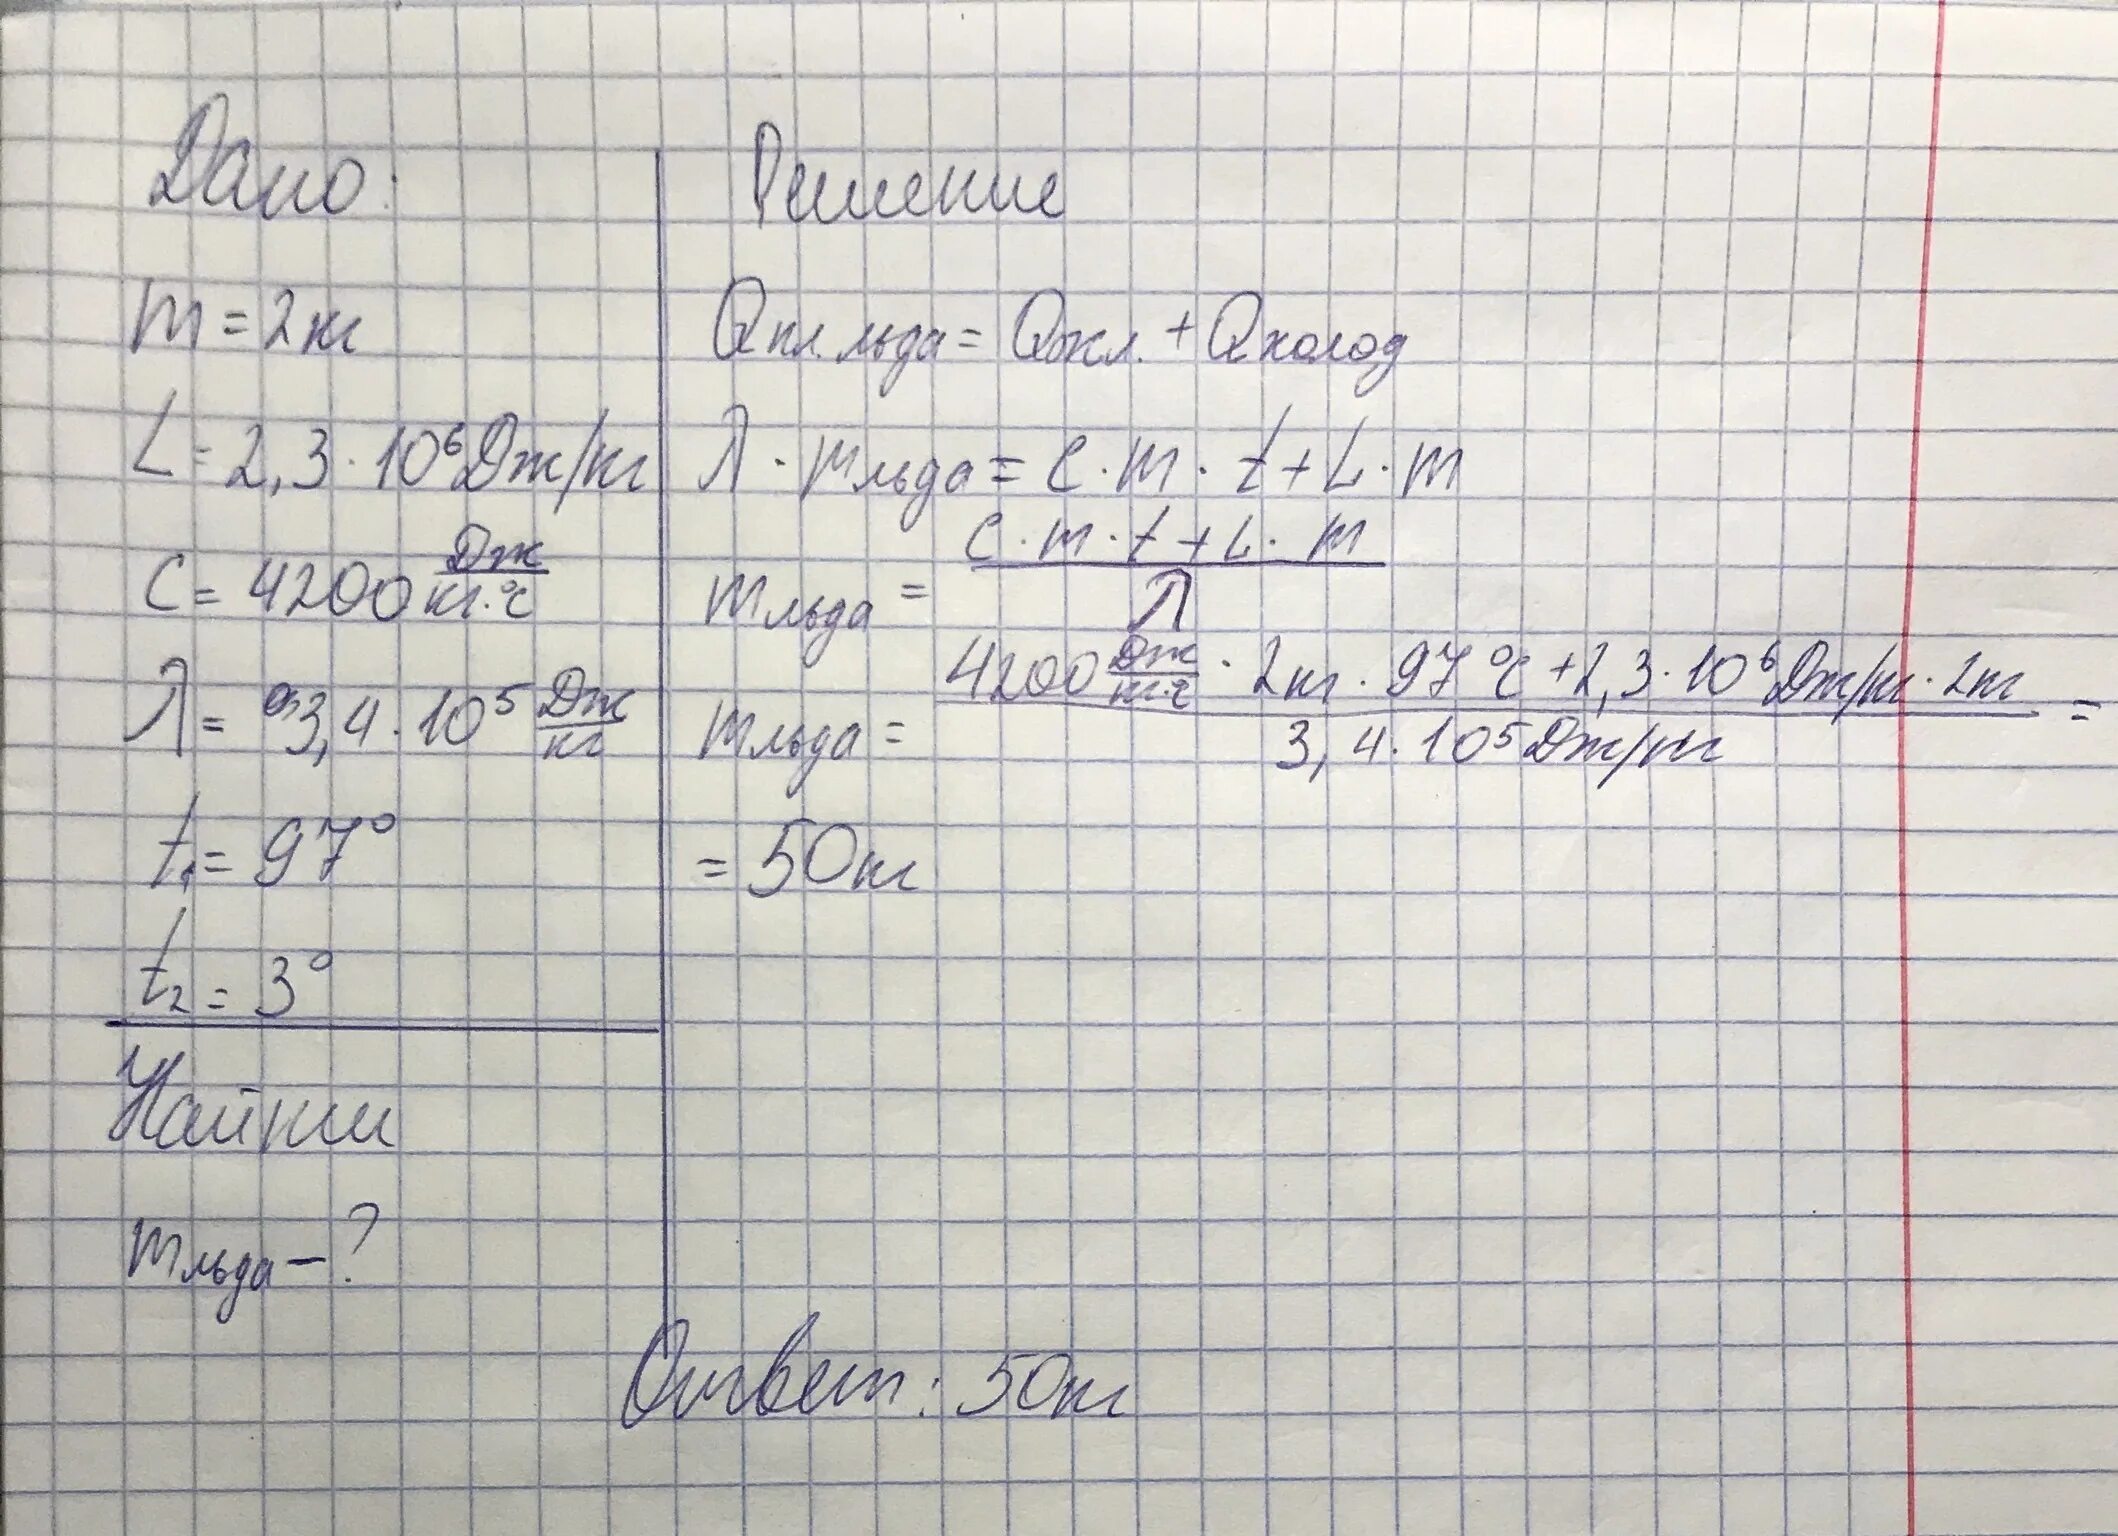 Дано:
m = 2кг
L = 2,3 · 10⁶ Дж/кг
c = 4200 Дж/кг·°c
λ = 3,4 · 10⁵ Дж/кг
t₁ = 97°
t₂ = 3°
Найти
mльда – ?
Решение
Qпл. льда = Qохл. + Qхолод
λ · mльда = c · m · t + L · m
mльда = c · m · t + L · m / λ
mльда = 4200 Дж/кг·°c · 2кг · 97 °c + 2,3 · 10⁶ Дж/кг · 2кг / 3,4 · 10⁵ Дж/кг =
= 50кг
Ответ: 50кг